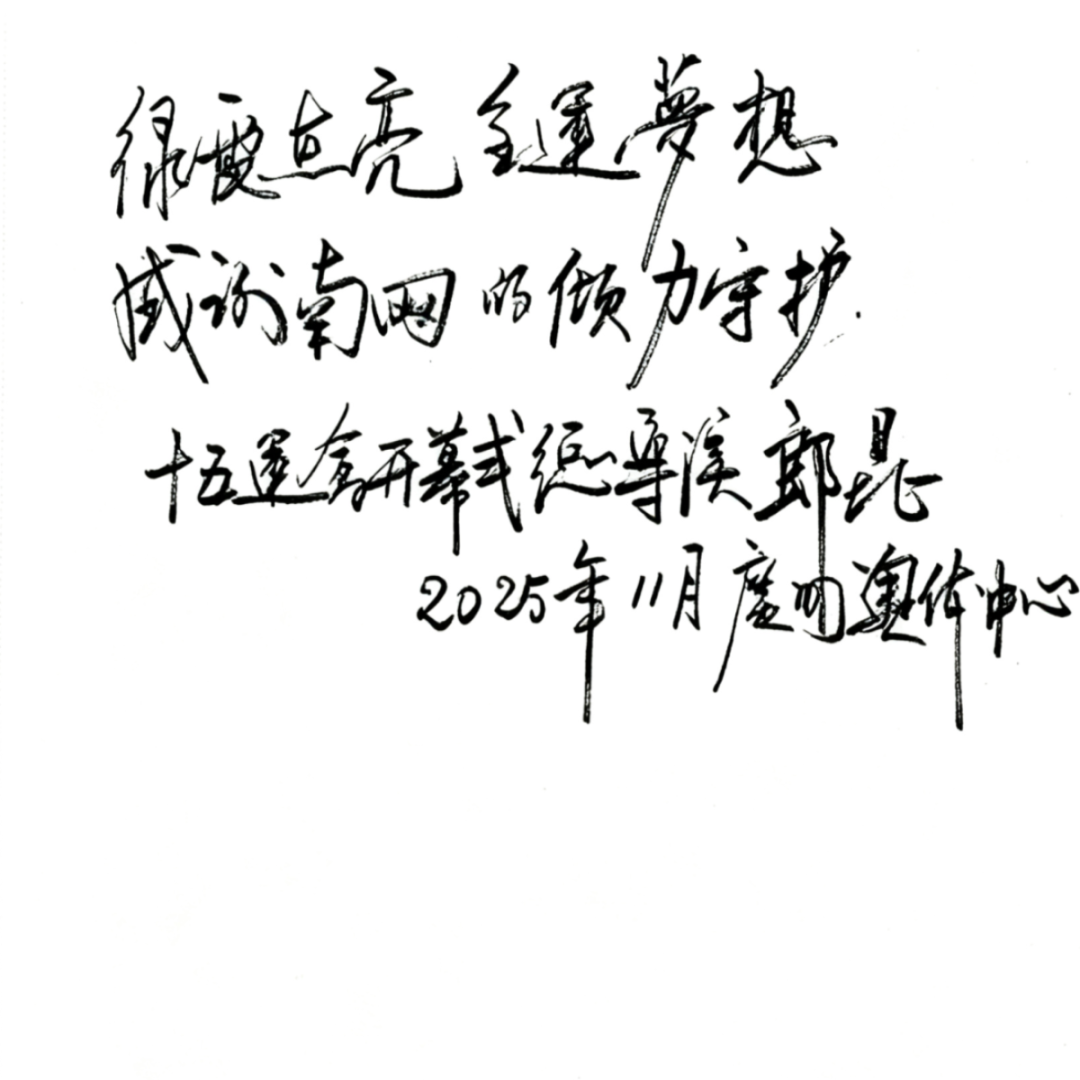 绿电点亮全運夢想
感谢南网的倾力守护.
十五運会开幕式总导演郎昆
2025年11月廣州奥体中心